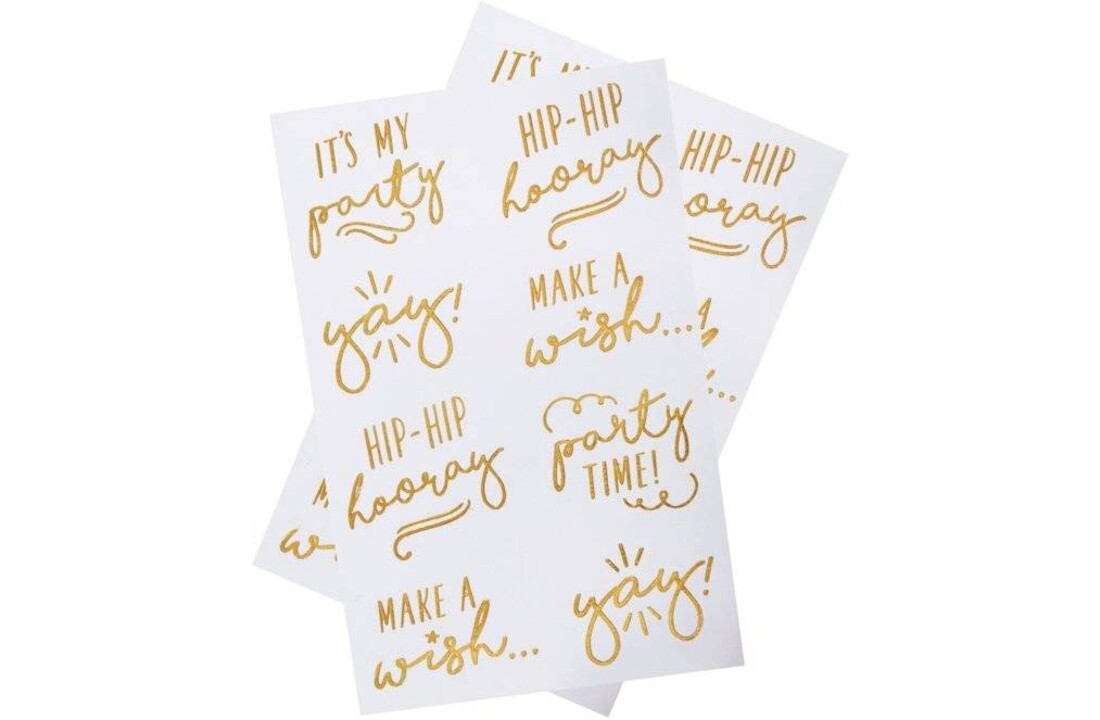 IT'S MY
party
HIP-HIP
hooray
yay!
MAKE A
wish...
HIP-HIP
hooray
party
TIME!
MAKE A
wish...
yay!
IT'S
HIP-HIP
ooray